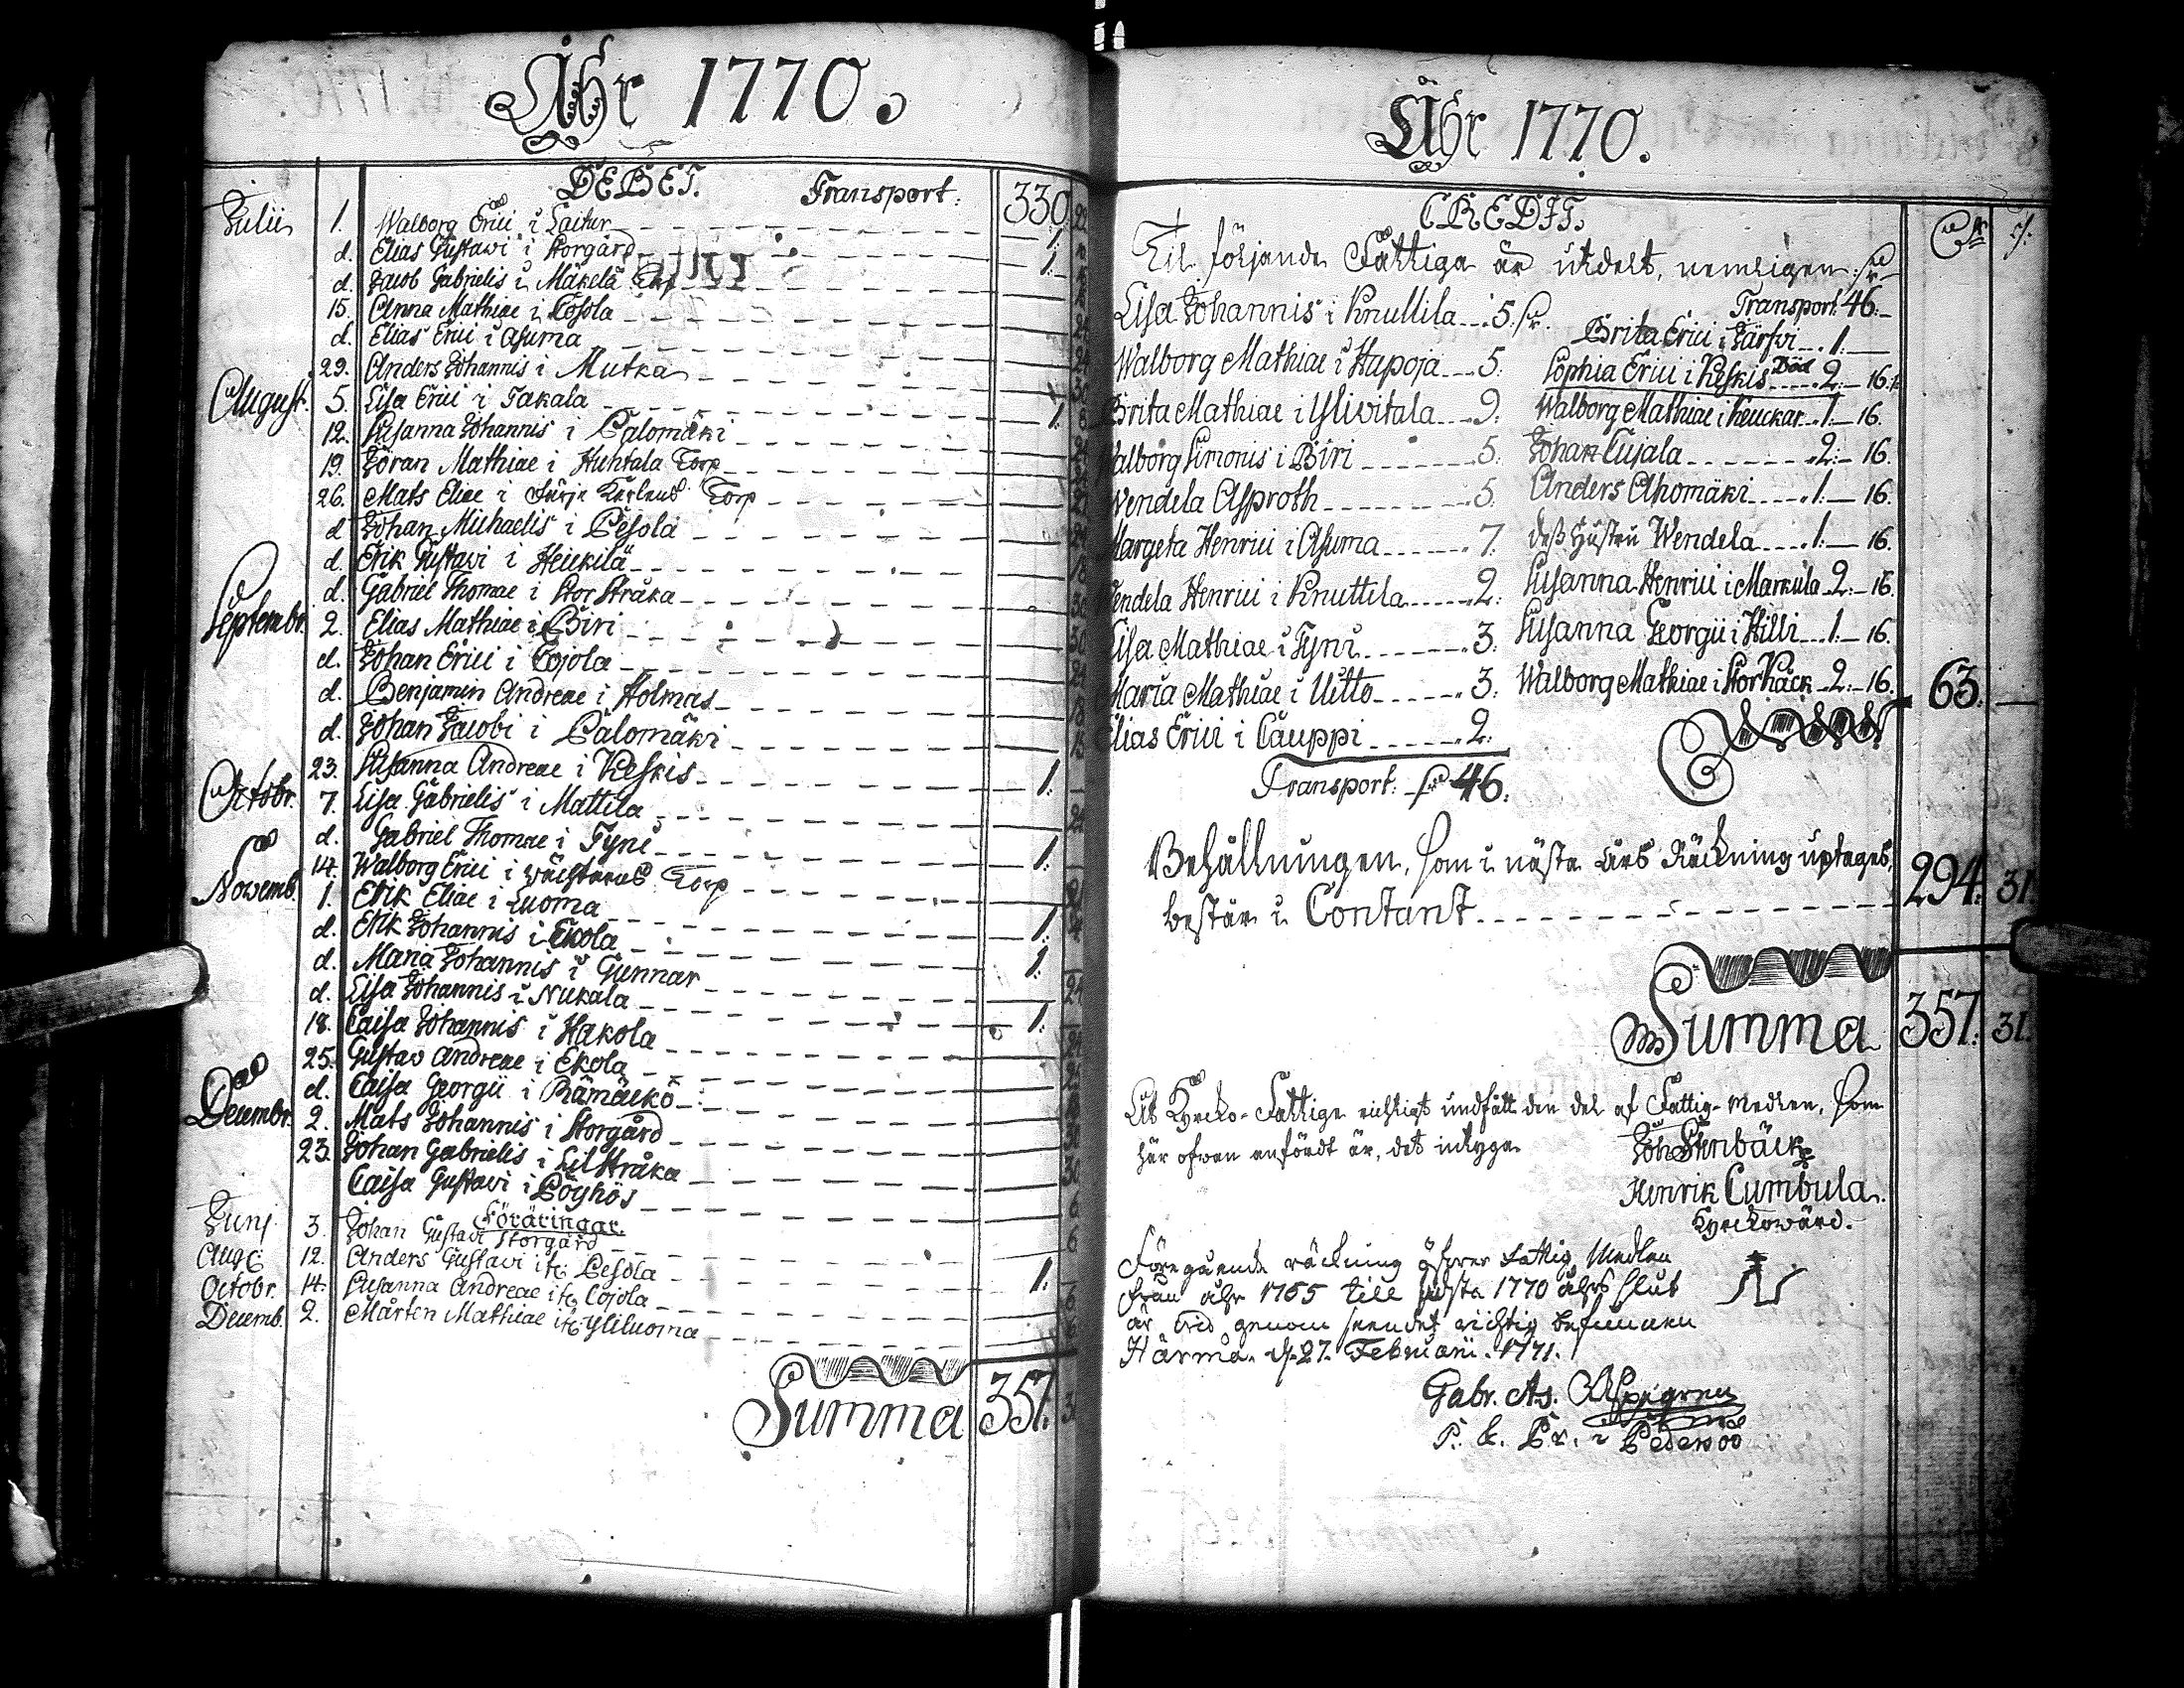 Åhr 1770.
DEBET. Transport: 330
Julii 1. Walborg Erici i Laitur 1.
d. Elias Gustavi i Storgård 1.
d. Jacob Gabrielis i Mäkelä Torp
15. Anna Mathiae i Cojola
d. Elias Erici i Asuma
29. Anders Johannis i Mutka
August. 5. Lisa Erici i Takala 1.
12. Susanna Johannis i Palomäki
19. Jöran Mathiae i Huhtala Torp
26. Mats Eliae i Torp
d. Johan Michaelis i Pesola
d. Erik Gustavi i Heickilä
d. Gabriel Thomae i Stor Stråka
Septembr. 2. Elias Mathiae i Biri
d. Johan Erici i Cojola
d. Benjamin Andreae i Holmas
d. Johan Jacobi i Palomäki
23. Susanna Andreae i Keskis 1.
Octobr. 7. Lisa Gabrielis i Mattila
d. Gabriel Thomae i Tyni 1.
14. Walborg Erici i Torp
Novemb. 1. Erik Eliae i Luoma 1.
d. Erik Johannis i Ekola 1.
d. Maria Johannis i Gunnar
d. Lisa Johannis i Nukala 1.
18. Caisa Johannis i Hakola
25. Gustav Andreae i Ekola
d. Caisa Georgii i Rämäckö
Decembr. 2. Mats Johannis i Storgård
23. Johan Gabrielis i Lil Stråka
Caisa Gustavi i Löyhös
Föräringar.
Junj 3. Johan Gustavi Storgård
Aug: 12. Anders Gustavi it: Pesola 1.
Octobr. 14. Susanna Andreae it: Cojola
Decemb. 2. Mårten Mathiae it: Yliluoma
Summa 357.
Åhr 1770.
CREDIT.
Til följande Fattiga är utdelt, nemligen:
Lisa Johannis i Knuttila 5.
Walborg Mathiae i Hapoja 5.
Brita Mathiae i Ylivitala 9.
Walborg Simonis i Biri 5.
Wendela Asproth 5.
Margeta Henrici i Asuma 7.
Wendela Henrici i Knuttila 2.
Lisa Mathiae i Tyni 3.
Maria Mathiae i Uitto 3.
Elias Erici i Cauppi 2.
Transport: 46.
Transport 46.
Brita Erici i Järfvi 1.
Sophia Erici i Keskis Död 2: 16.
Walborg Mathiae i Keuckar 1. 16.
Johan Cujala 2: 16.
Anders Ahomäki 1. 16.
dess Hustru Wendela 1. 16.
Susanna Henrici i Markula 2: 16.
Susanna Georgii i Hilli 1. 16.
Walborg Mathiae i Stor Käck 2: 16. 63.
Behållningen, som i nästa Års Räckning uptages,
består i Contant 294. 31.
Summa 357. 31.
At Kyrcko-Fattige richtigt undfått den del af Fattig-Medlen, som
här ofvan anfördt är, det intygar
Joh Stenbäck
Henrik Cumbula
Kyrckowärd.
Föregående räckning öfwer Fattig Medlen
från åhr 1765 till sidsta 1770 åhrs slut
är wid genom seendet richtig befunnen
Härmä d. 27. Februarii 1771.
Gabr. As. Aspegren
P. & Pr. i Pederso